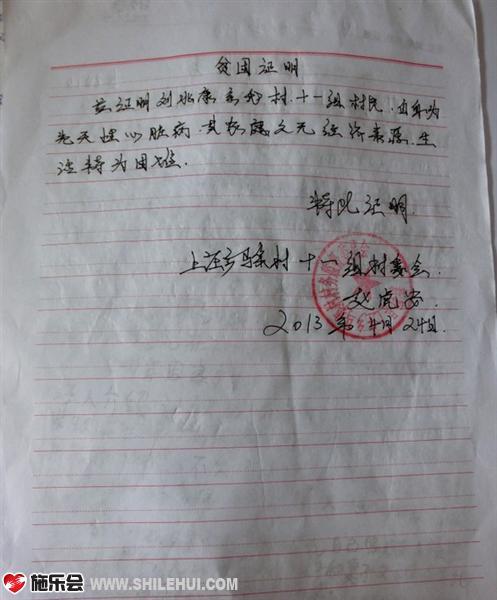 贫困证明
兹证明刘兆康系我村十一组村民,由身为
先天性心脏病,其家庭又无经济来源,生
活特为困难。
特此证明
上汪乡马家村十一组村委会.
2013年4月24日
施乐会 WWW.SHILEHUI.COM